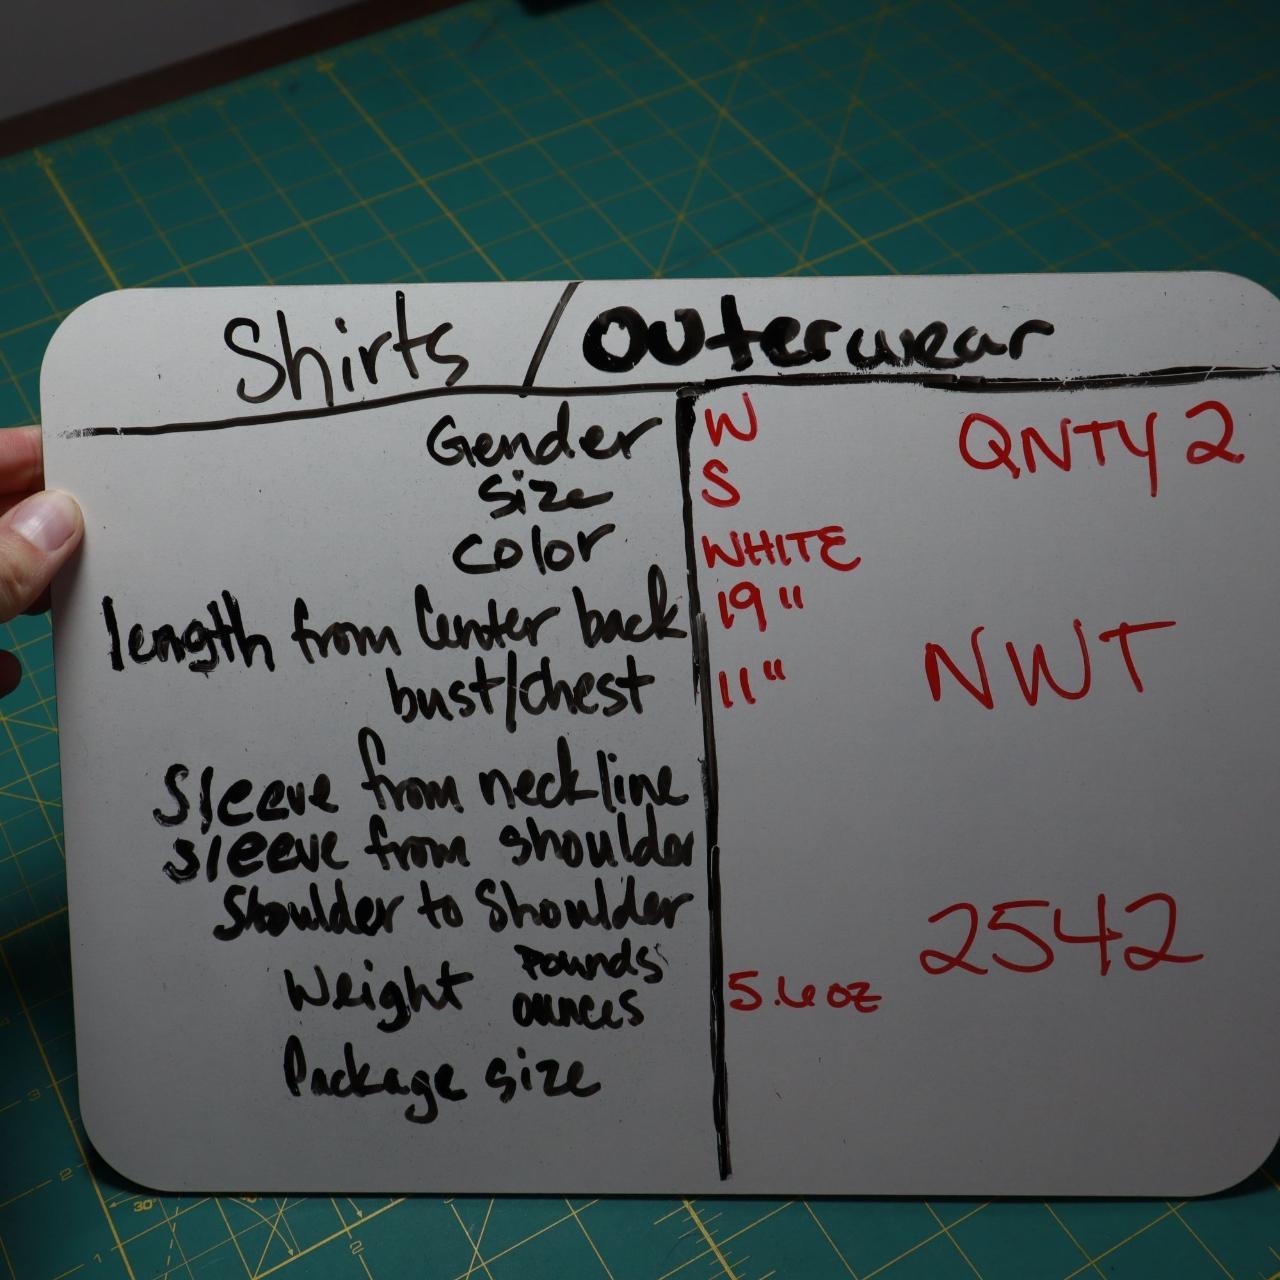 Shirts / Outerwear
Gender W QNTY 2
Size S
Color WHITE
length from Center back 19"
bust/chest 11" NWT
Sleeve from neckline
sleeve from shoulder
Shoulder to Shoulder 2542
Weight pounds
ounces 5.6 oz
Package size
30°
3
2
1
2